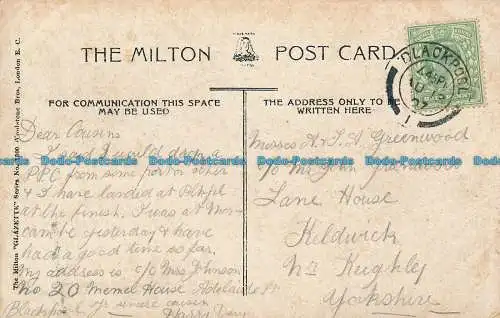 THE MILTON POST CARD
BLACKPOOL
FOR COMMUNICATION THIS SPACE
MAY BE USED
THE ADDRESS ONLY TO BE
WRITTEN HERE
The Milton "GLAZETTE" Series No. Woolstone Bros., London E. C.
Dear Cousins
I said I would drop a
PPC from some port or other
& I have landed at
at the finish. I was at More-
cambe yesterday & have
had a good time so far.
my address is c/o Mrs Johnson
No 20 Memel House Adelaide St
Blackpool sincere cousin
Harry
Misses A. & A Greenwood
c/o Mr John Greenwood
Lane House
Kildwick
Nr Keighley
Yorkshire